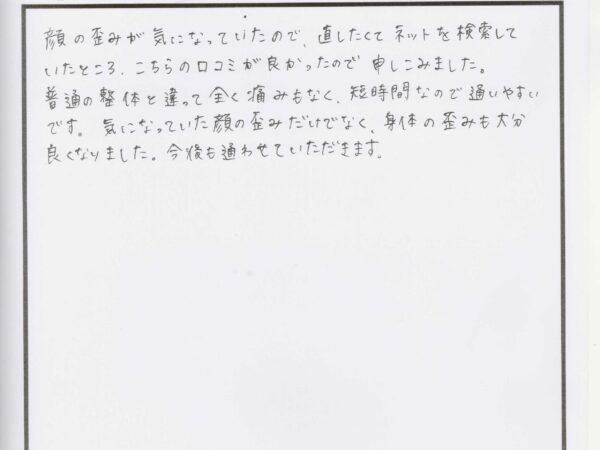 顔の歪みが気になっていたので、直したくて ネットを検索して
いたところ、こちらの口コミが良かったので 申しこみました。
普通の整体と違って全く痛みもなく、短時間なので通いやすい
です。気になっていた顔の歪みだけでなく、身体の歪みも大分
良くなりました。今後も通わせていただきます。